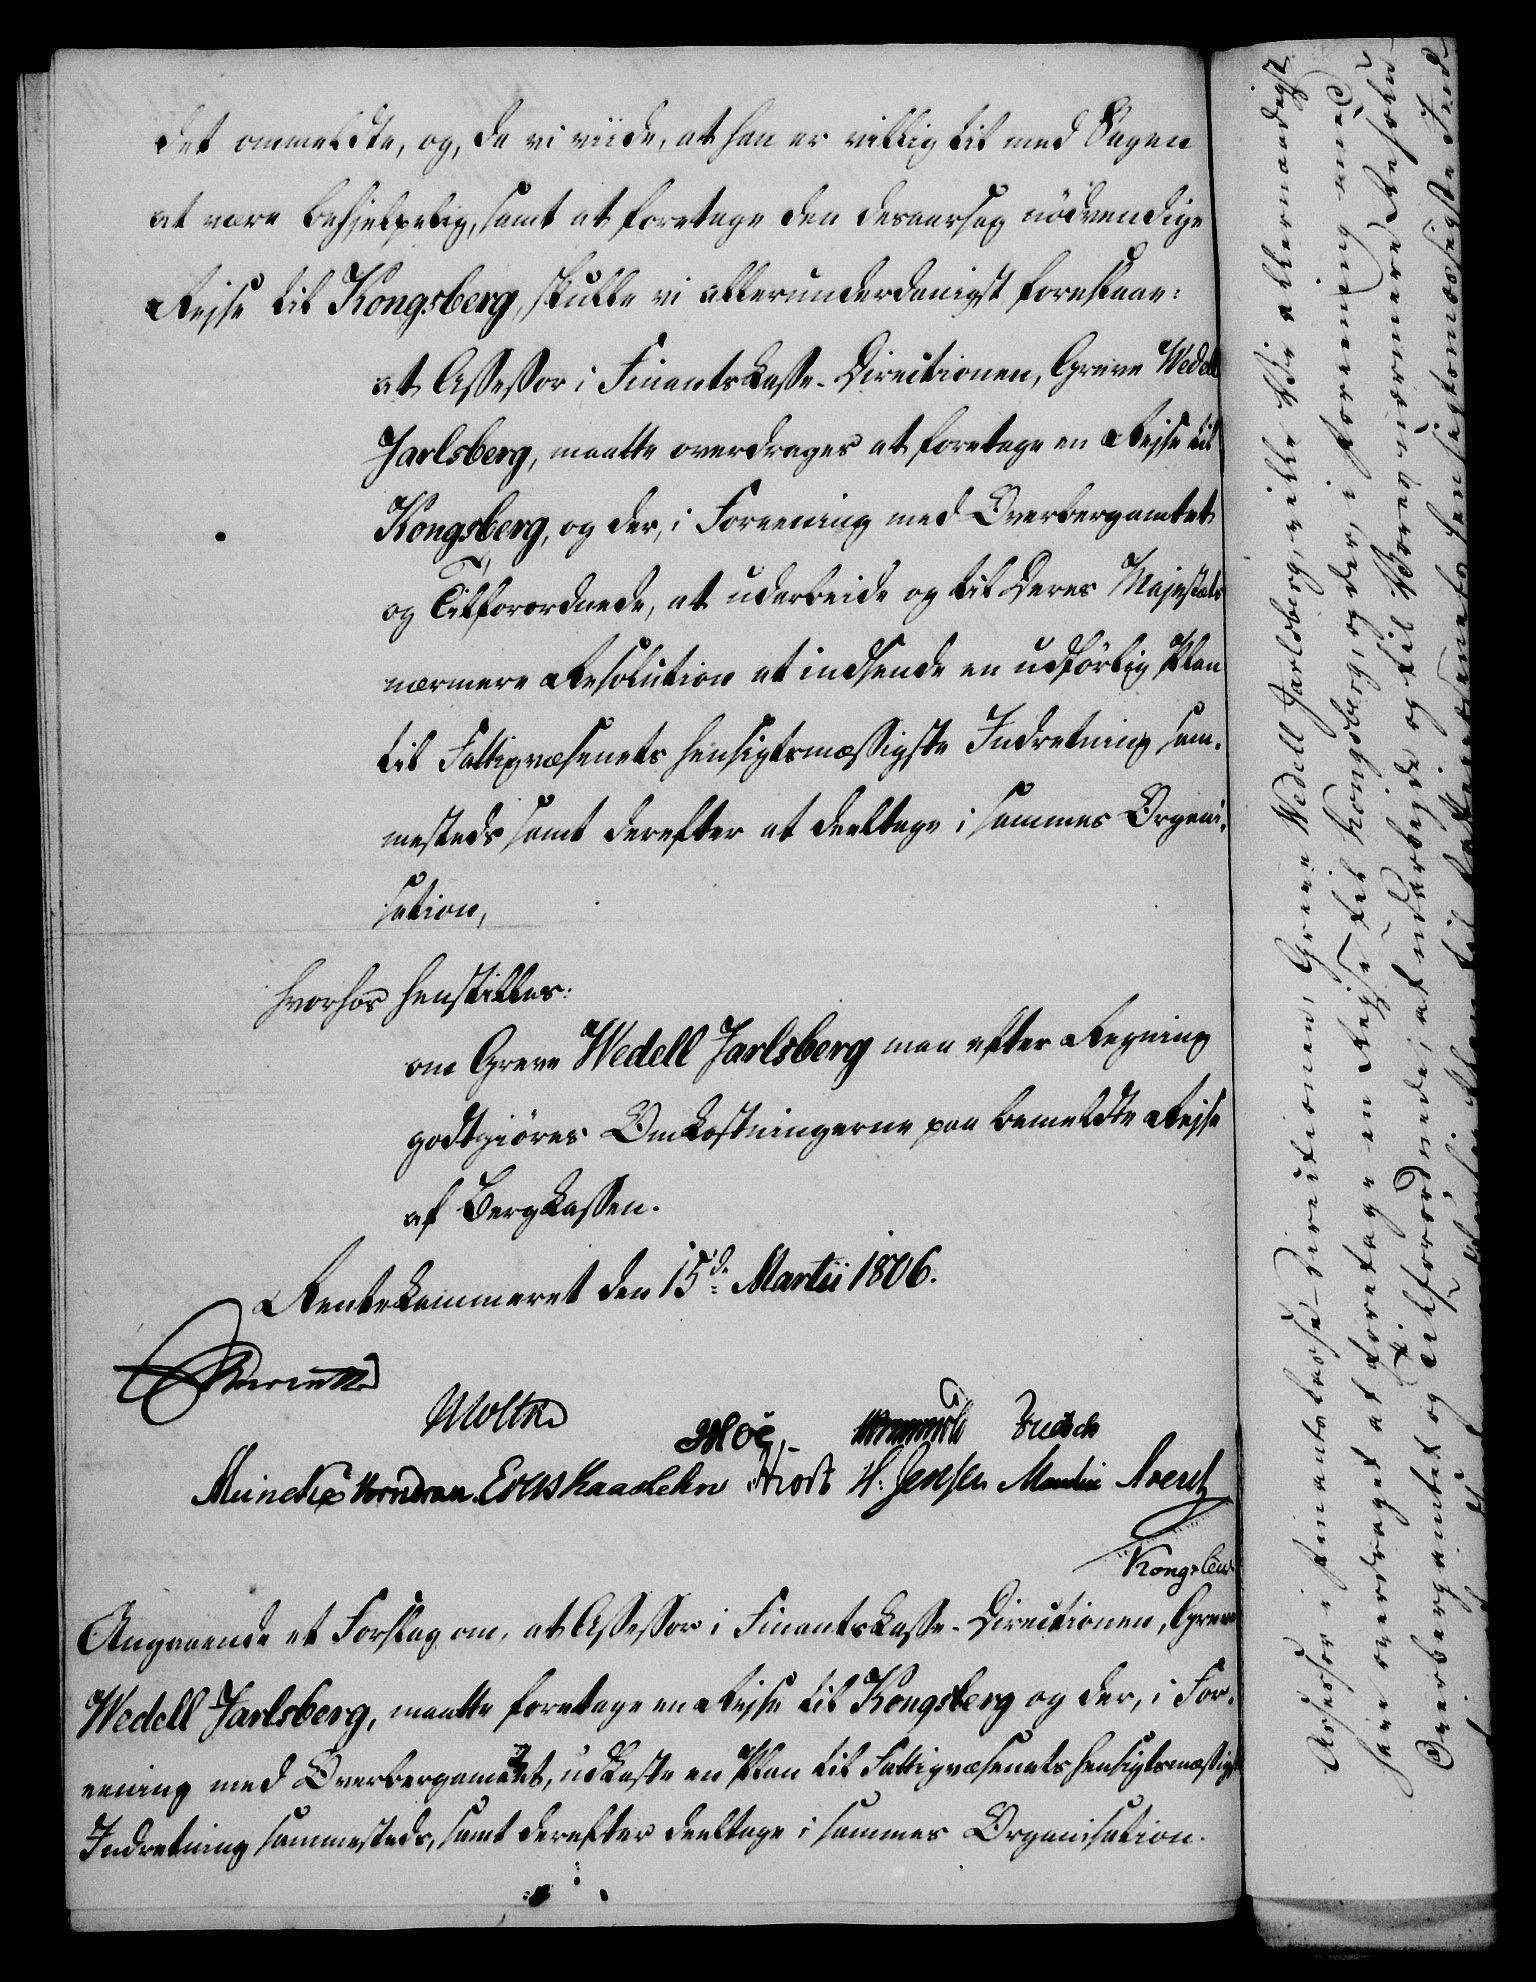 det ommeldte, og, da vi viide, at han er villig til med Sagen
at være behjelpelig, samt at foretage den desaarsag nödvendige
Rejse til Kongsberg, skulle vi allerunderdanigst forestaae:
at Assessor i Finantskasse-Directionen, Greve Wedell
Jarlsberg, maatte overdrages at foretage en Rejse til
Kongsberg, og der, i Foreening med Overbergamtet
og Tilforordnede, at udarbeide og til Deres Majestæts
nærmere Resolution at indsende en udförlig Plan
til Fattigvæsenets hensigtsmæssigste Indretning sam-
mesteds samt derefter at deeltage i sammes Organi-
sation,
hvorhos henstilles:
om Greve Wedell Jarlsberg maa efter Regning
godtgiöres Omkostningerne paa bemeldte Rejse
af Bergkassen.
Rentekammeret den 15de Martii 1806.
Moltke
Wormskiold
Meincke Knudsen Hiort H. Jensen Manthey Arentz
Kongslew
Angaaende et Forslag om, at Assessor i Finantskasse-Directionen, Greve
Wedell Jarlsberg, maatte foretage en Rejse til Kongsberg og der, i For-
eening med Overbergamtet, udkaste en Plan til Fattigvæsenets hensigtsmæssigste
Indretning sammesteds, samt derefter deeltage i sammes Organisation.
Assessor i Finantskasse-Directionen, Greve Wedell Jarlsberg, ville Vi allernaadigst
have overdraget at foretage en Rejse til Kongsberg, og der, i Foreening med
Overbergamtet og Tilforordnede, at udarbejde og til Vores nærmere Resolu-